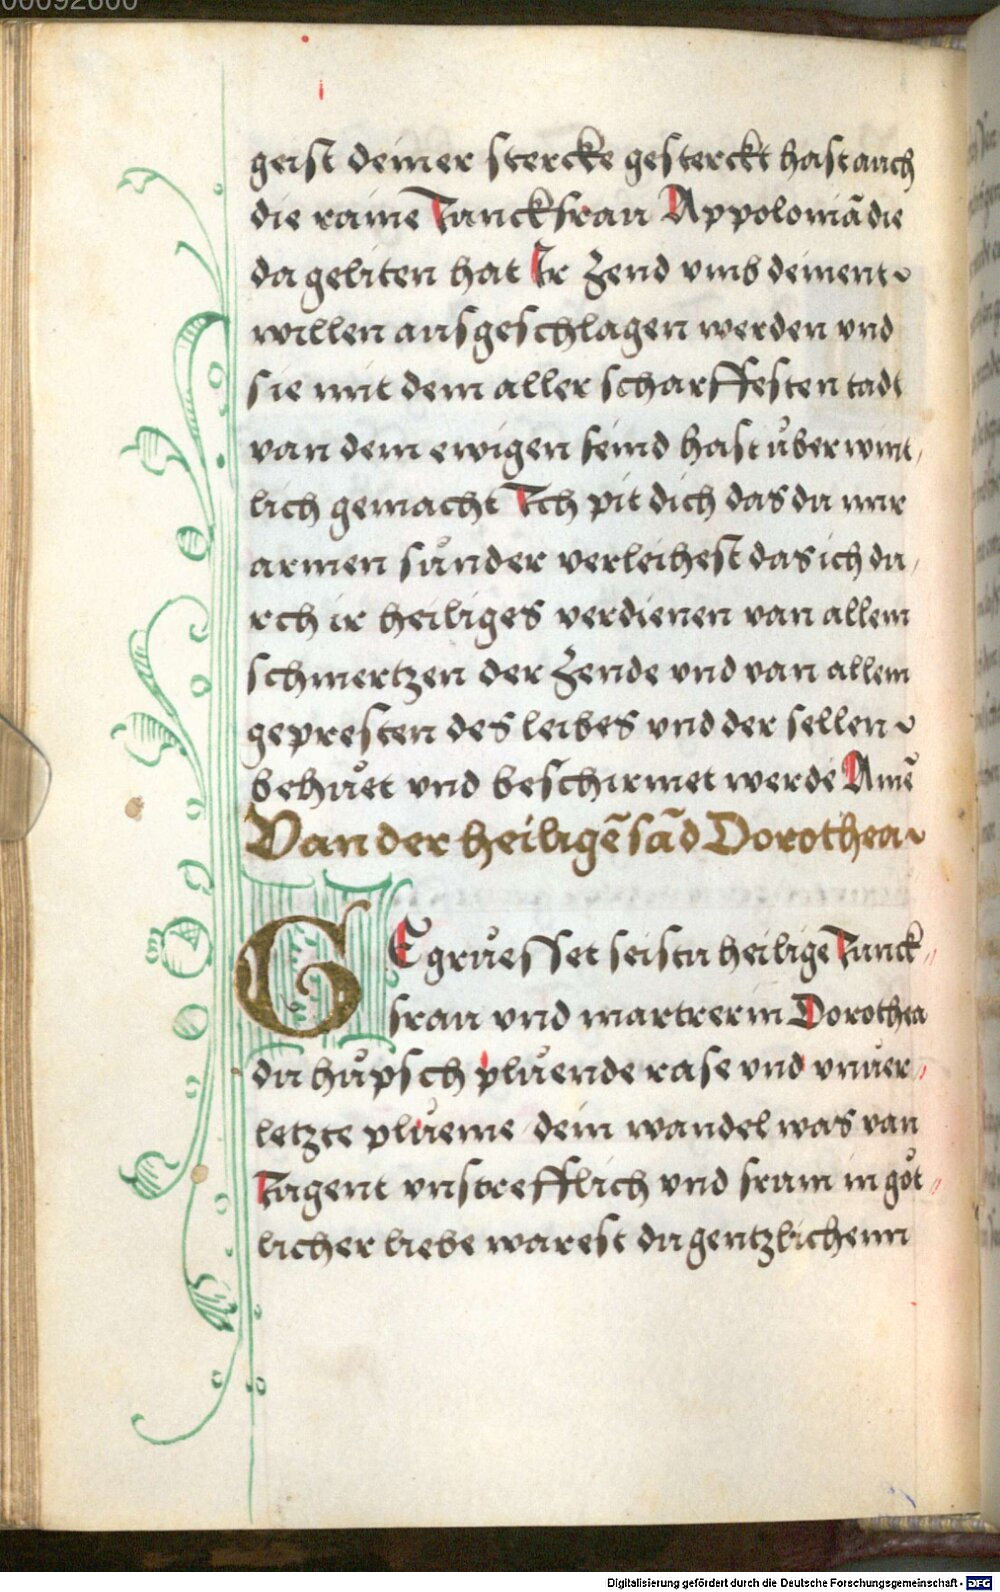 geist deiner stercke gesterckt hast auch
die raine Junckfrau Appoloniã die
da geliten hat Ir Zend vmb deinent
willen ausgeschlagen werden vnd
sie mit dem aller scharffesten tadt
van dem ewigen feind hast vͦber wint,
lich gemacht Ich pit dich das du mir
armen sůnder verleihest das ich du,
rch ir heiliges verdienen van allem
schmertzen der Zende vnd van allem
gepresten des leibes vnd der sellen
behuͦet vnd beschirmet werde Amẽ
Van der heiligẽ sãd Dorothea
GEgruͦesset seistu heilige Junck,,
frau vnd martrerin Dorothea
du huͦpsch pluͦende rase vnd vnuer,,
letzte pluͦeme dein wandel was van
Tugent vnstrefflich vnd fram in goͤt,,
licher liebe warest du gentzlichenn
Digitalisierung gefördert durch die Deutsche Forschungsgemeinschaft - DFG